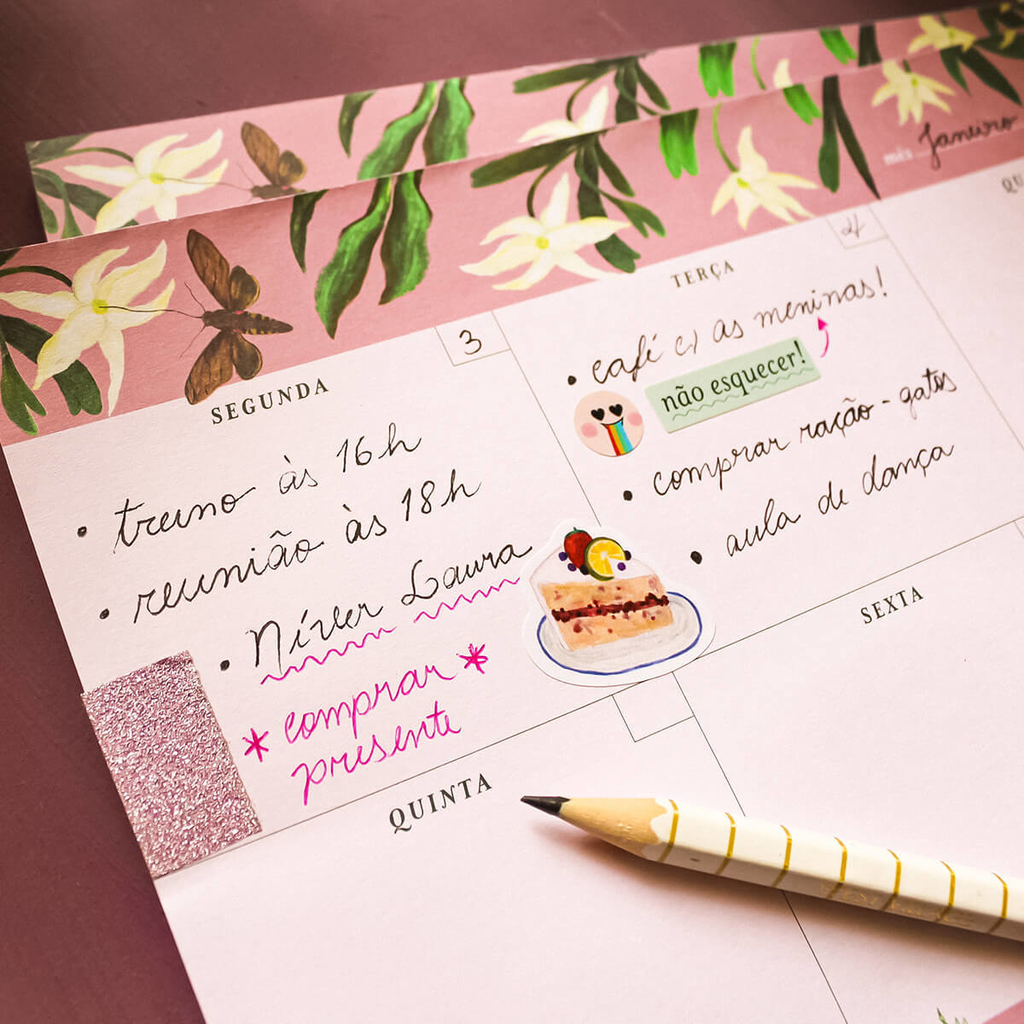 mês Janeiro
SEGUNDA
3
• treino às 16h
• reunião às 18h
• Níver Laura
* comprar *
presente
TERÇA
4
• café c/ as meninas!
não esquecer!
• comprar ração - gatos
• aula de dança
QU
QUINTA
SEXTA